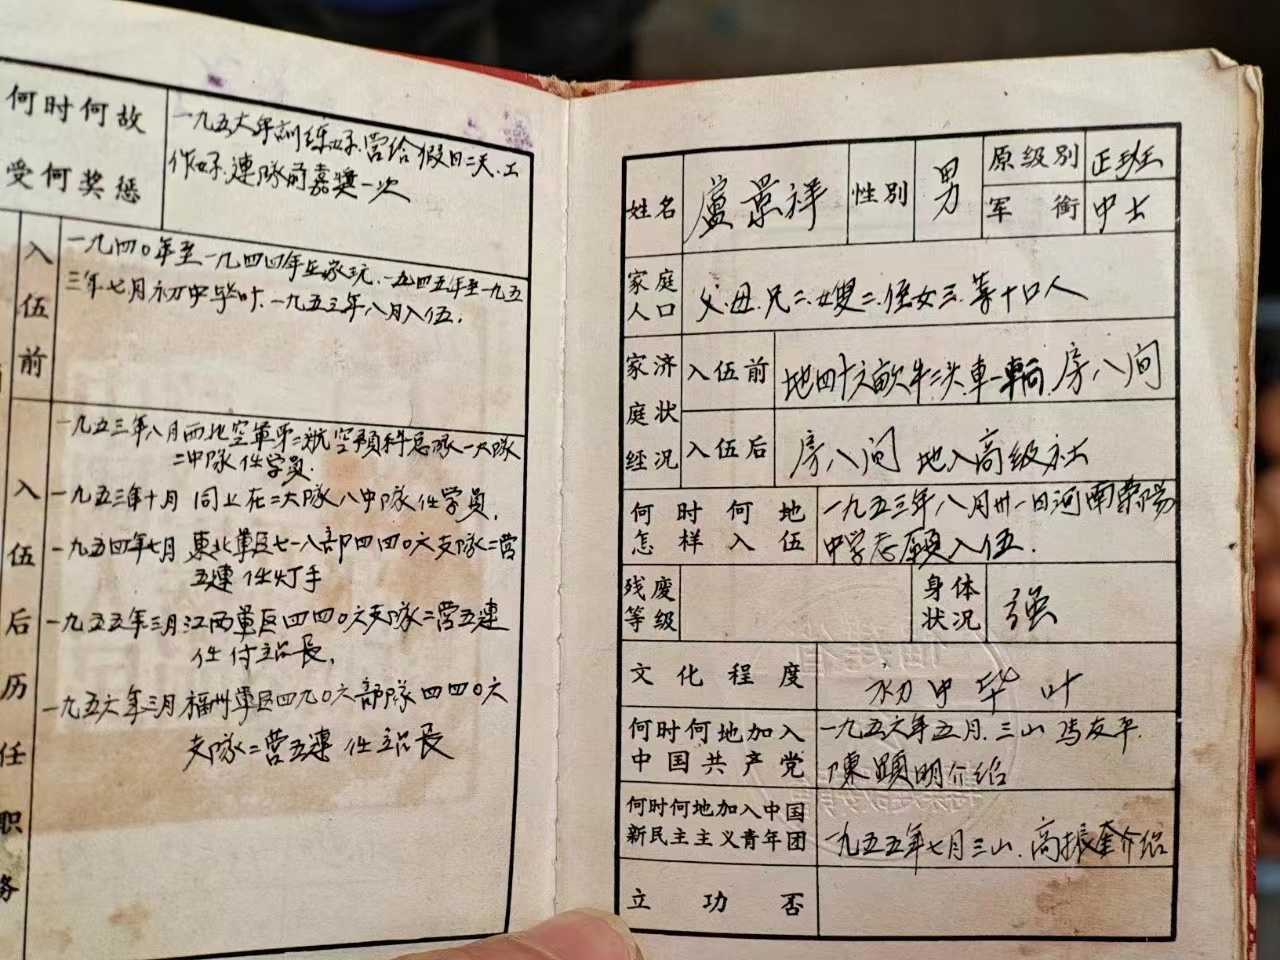 何时何故
受何奖惩
一九五六年訓练好.营给假日二天.工
作好.連隊前嘉奬一次
入伍前
一九四〇年至一九四四年在家玩.一九四五年至一九五
三年七月初中毕叶.一九五三年八月入伍.
入伍后历任职务
一九五三年八月西北空軍第二航空預科总隊一大隊
二中隊任学員.
一九五三年十月 同上在二大隊八中隊任学員.
一九五四年七月 東北軍区七一八部四四〇六支隊二营
五連任灯手
一九五五年三月江西軍区四四〇六支隊二营五連
任付站長.
一九五六年三月福州軍区四九〇六部隊四四〇六
支隊二营五連任站長
姓名 盧景祥 性别 男 原级别 正班
军衔 中士
家庭人口 父.母.兄二.嫂二.侄女三.等十口人
家庭经济状况
入伍前 地四十六畝牛二头車一輌.房八间
入伍后 房八间 地入高级社
何时何地 一九五三年八月卅一日河南荣陽
怎样入伍 中学志願入伍.
残废等级
身体状况 强
文化程度 初中毕叶
何时何地加入 一九五六年五月.三山 馮友平.
中国共产党 陳顕明介绍
何时何地加入中国
新民主主义青年团 一九五五年七月三山.高振奎介绍
立功否